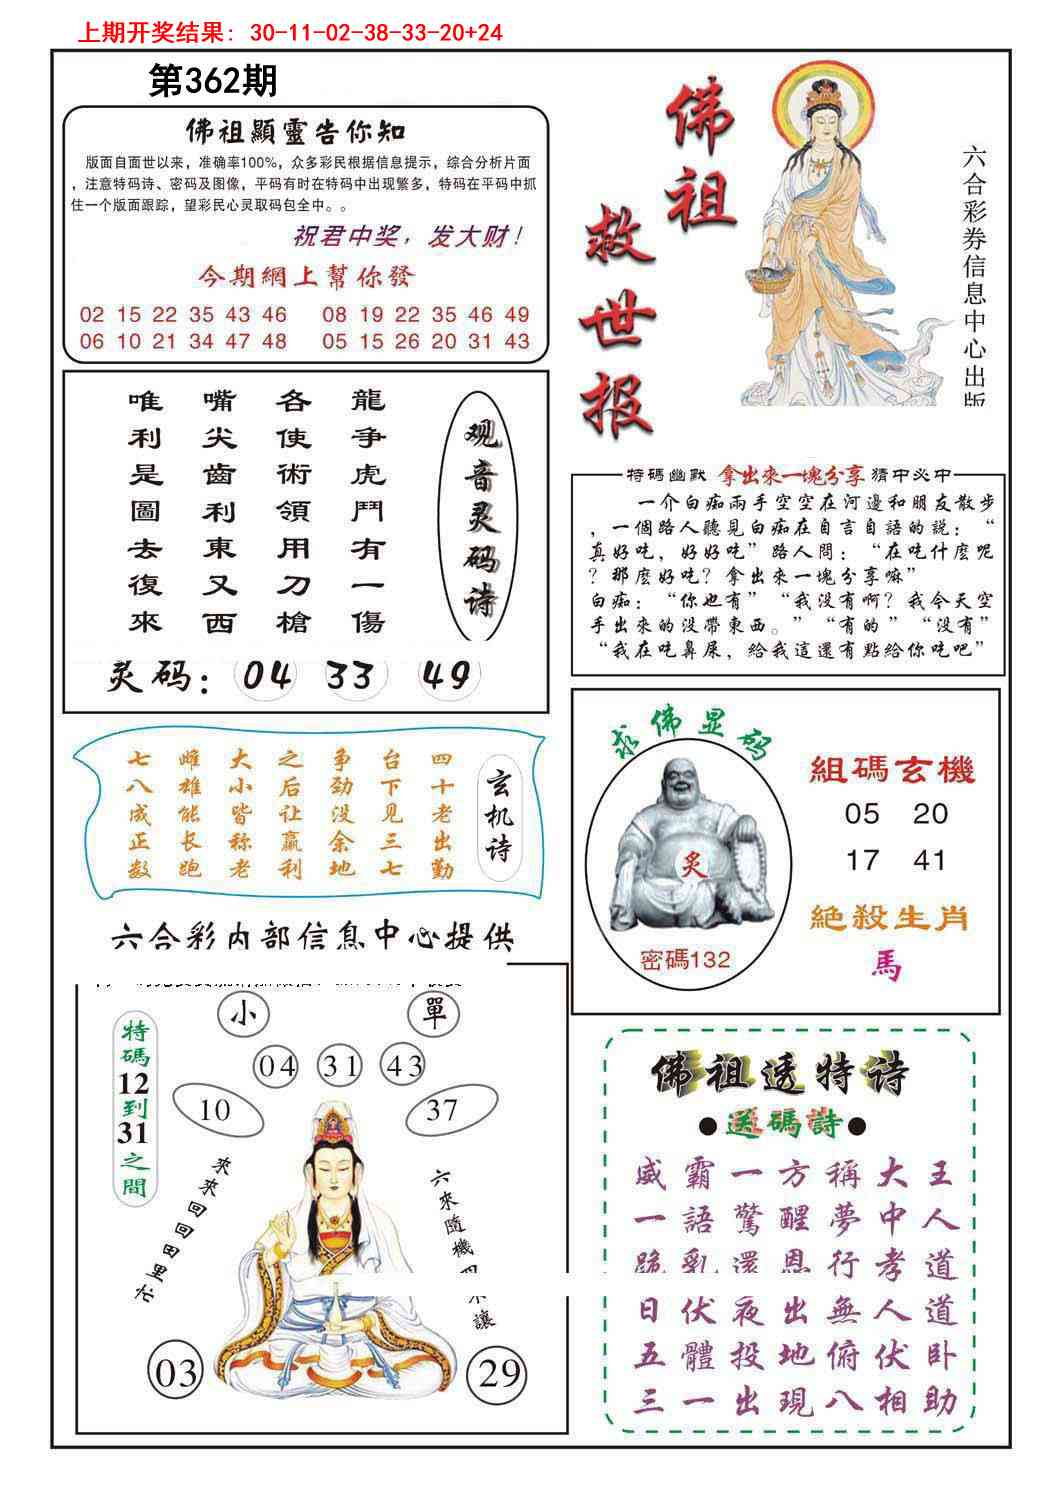 上期开奖结果: 30-11-02-38-33-20+24
第362期
佛祖顯靈告你知
版面自面世以来，准确率100%，众多彩民根据信息提示，综合分析片面
，注意特码诗、密码及图像，平码有时在特码中出现繁多，特码在平码中抓
住一个版面跟踪，望彩民心灵取码包全中。。
祝君中奖，发大财！
今期網上幫你發
02 15 22 35 43 46 08 19 22 35 46 49
06 10 21 34 47 48 05 15 26 20 31 43
佛祖救世报
六合彩券信息中心出版
观音灵码诗
龍争虎鬥有一傷
各使術領用刀槍
嘴尖齒利東又西
唯利是圖去復來
灵码：04 33 49
特碼幽默 拿出來一塊分享 猜中必中
一个白痴兩手空空在河邊和朋友散步
，一個路人聽見白痴在自言自語的説：“
真好吃，好好吃”路人問：“在吃什麼呢
？那麼好吃？拿出來一塊分享嘛”
白痴：“你也有”“我没有啊？我今天空
手出來的没帶東西。”“有的”“没有”
“我在吃鼻屎，給我這還有點給你吃吧”
玄机诗
四十老出勤
台下见三七
争劲没余地
之后让赢利
大小皆称老
雌雄能长跑
七八成正数
六合彩内部信息中心提供
求佛显码
炙
密碼132
組碼玄機
05 20
17 41
絶殺生肖
馬
小 單
04 31 43
10 37
特碼12到31之間
來來回回田里忙
六來隨機
讓
03 29
佛祖透特诗
●送碼詩●
威霸一方稱大王
一語驚醒夢中人
跪乳還恩行孝道
日伏夜出無人道
五體投地俯伏卧
三一出現八相助